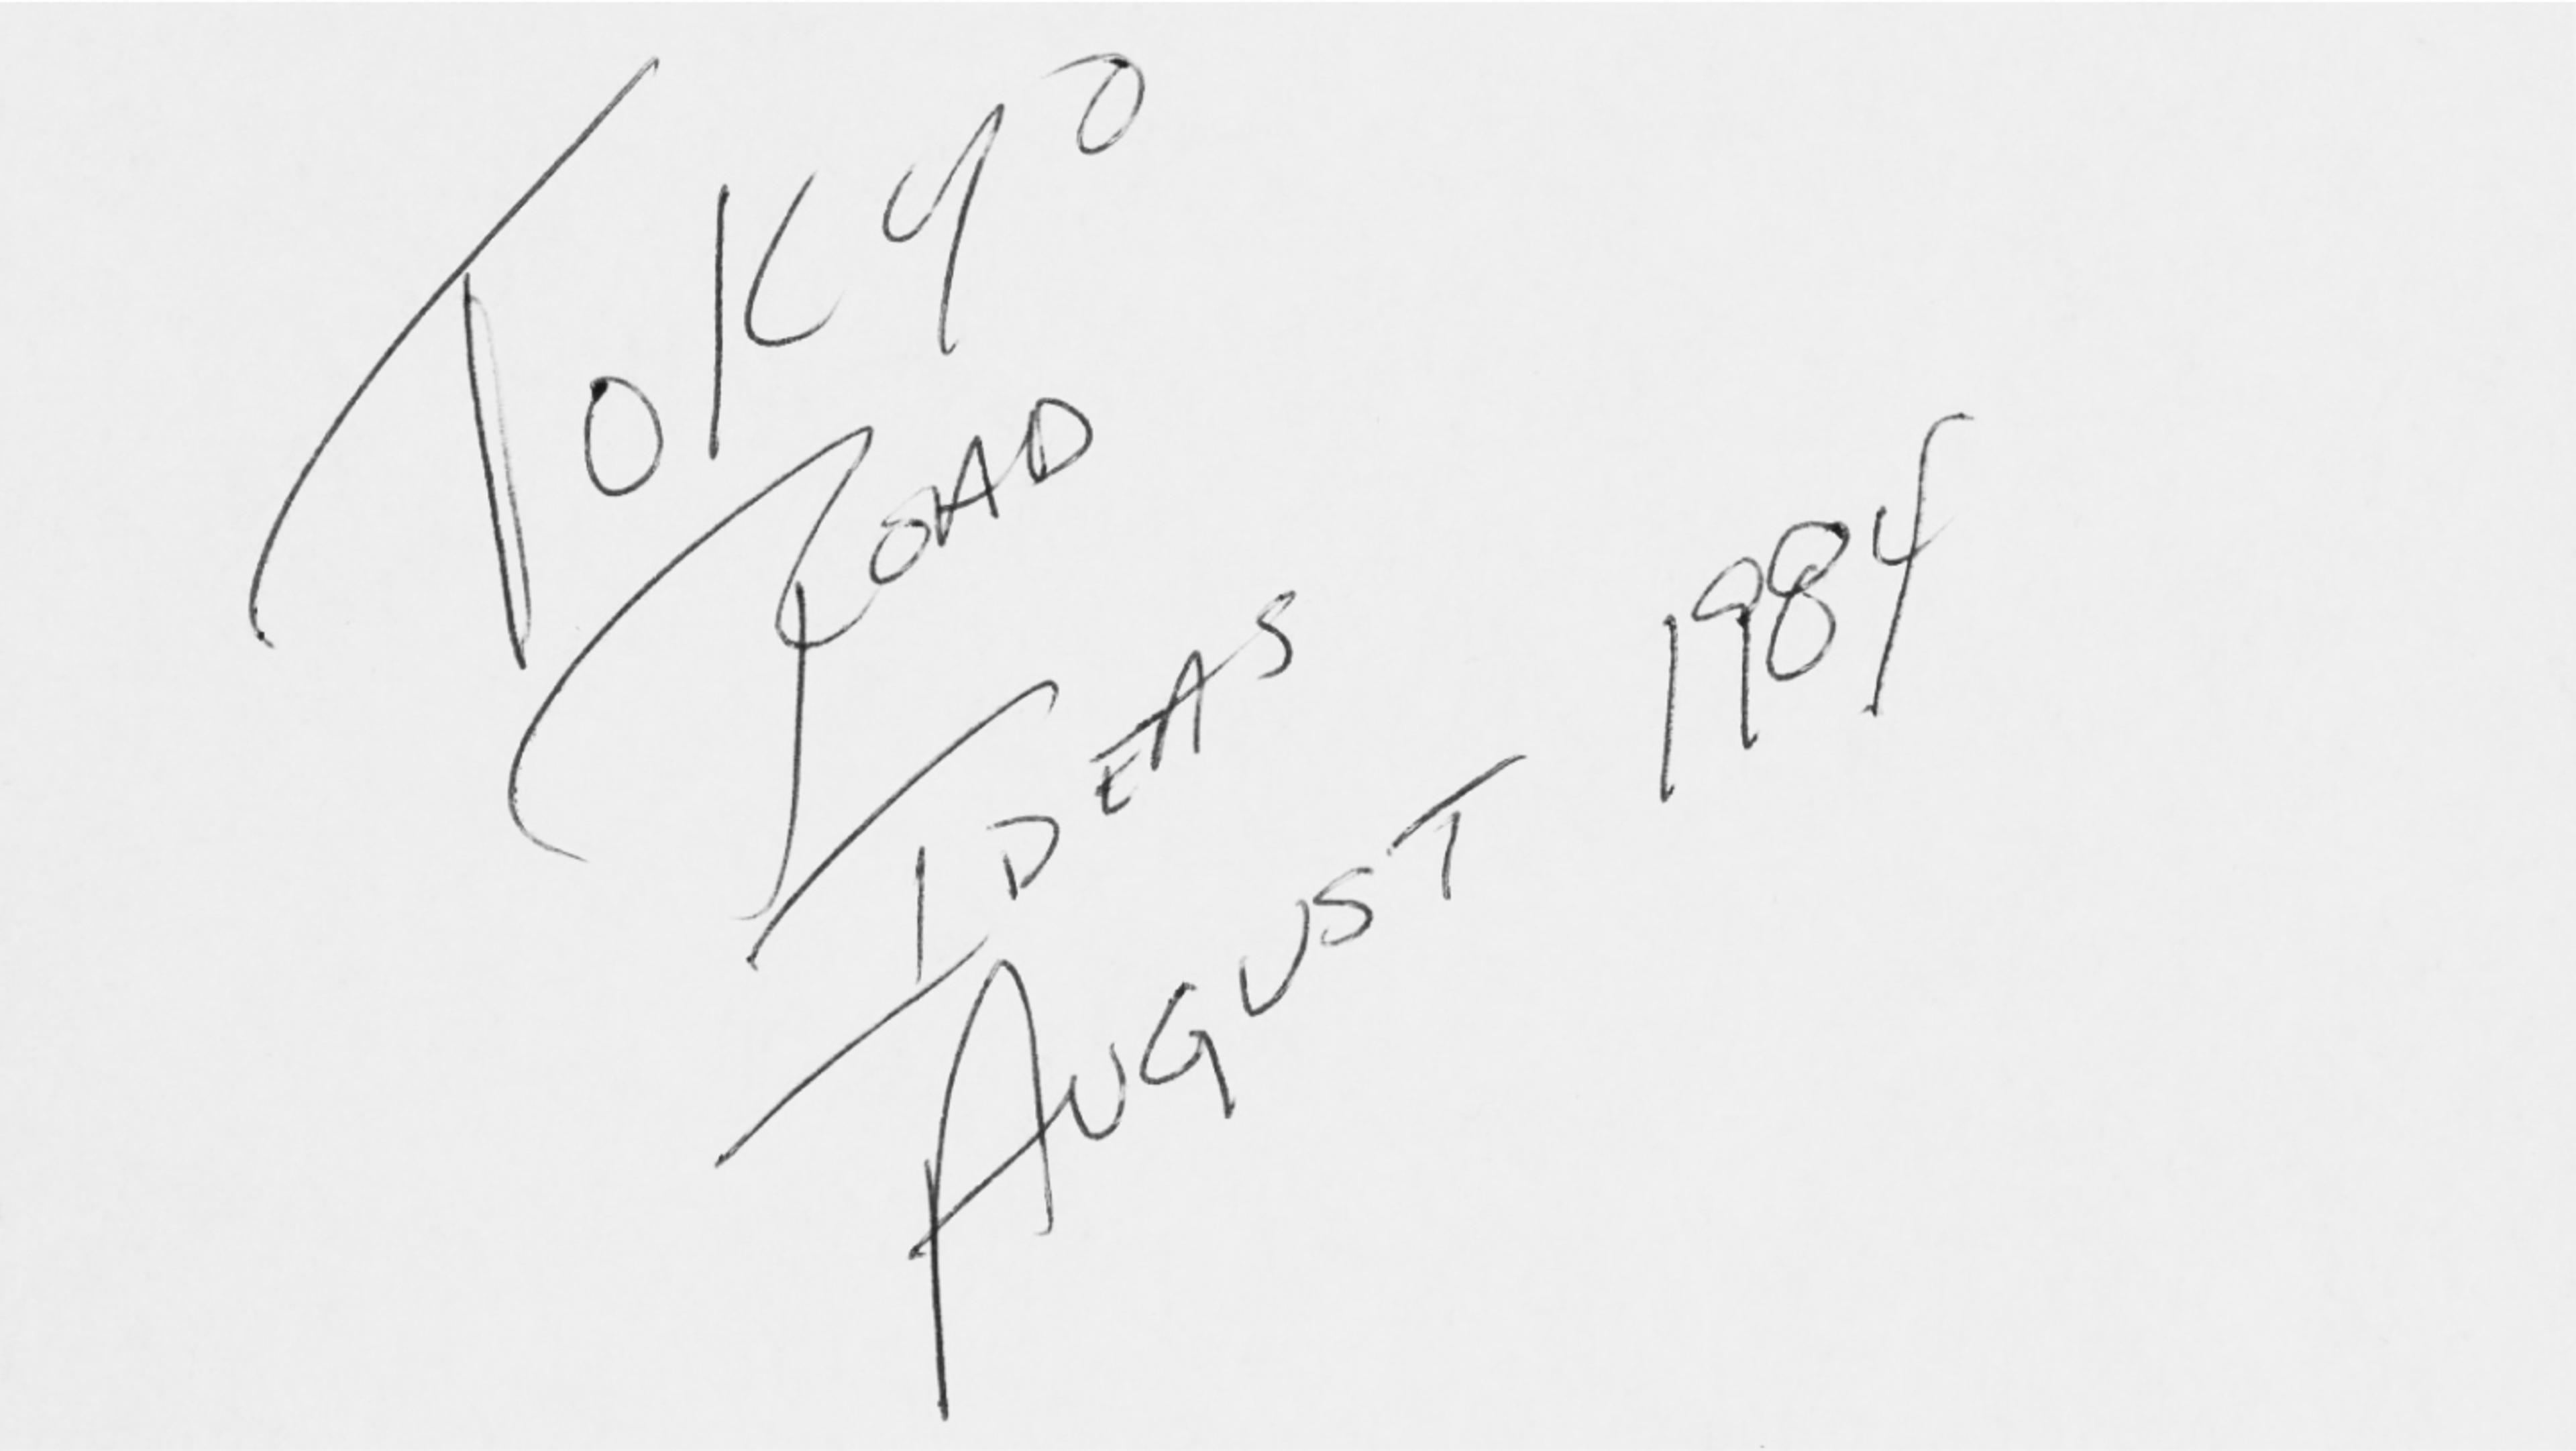 TOKYO
ROAD
IDEAS
AUGUST 1984